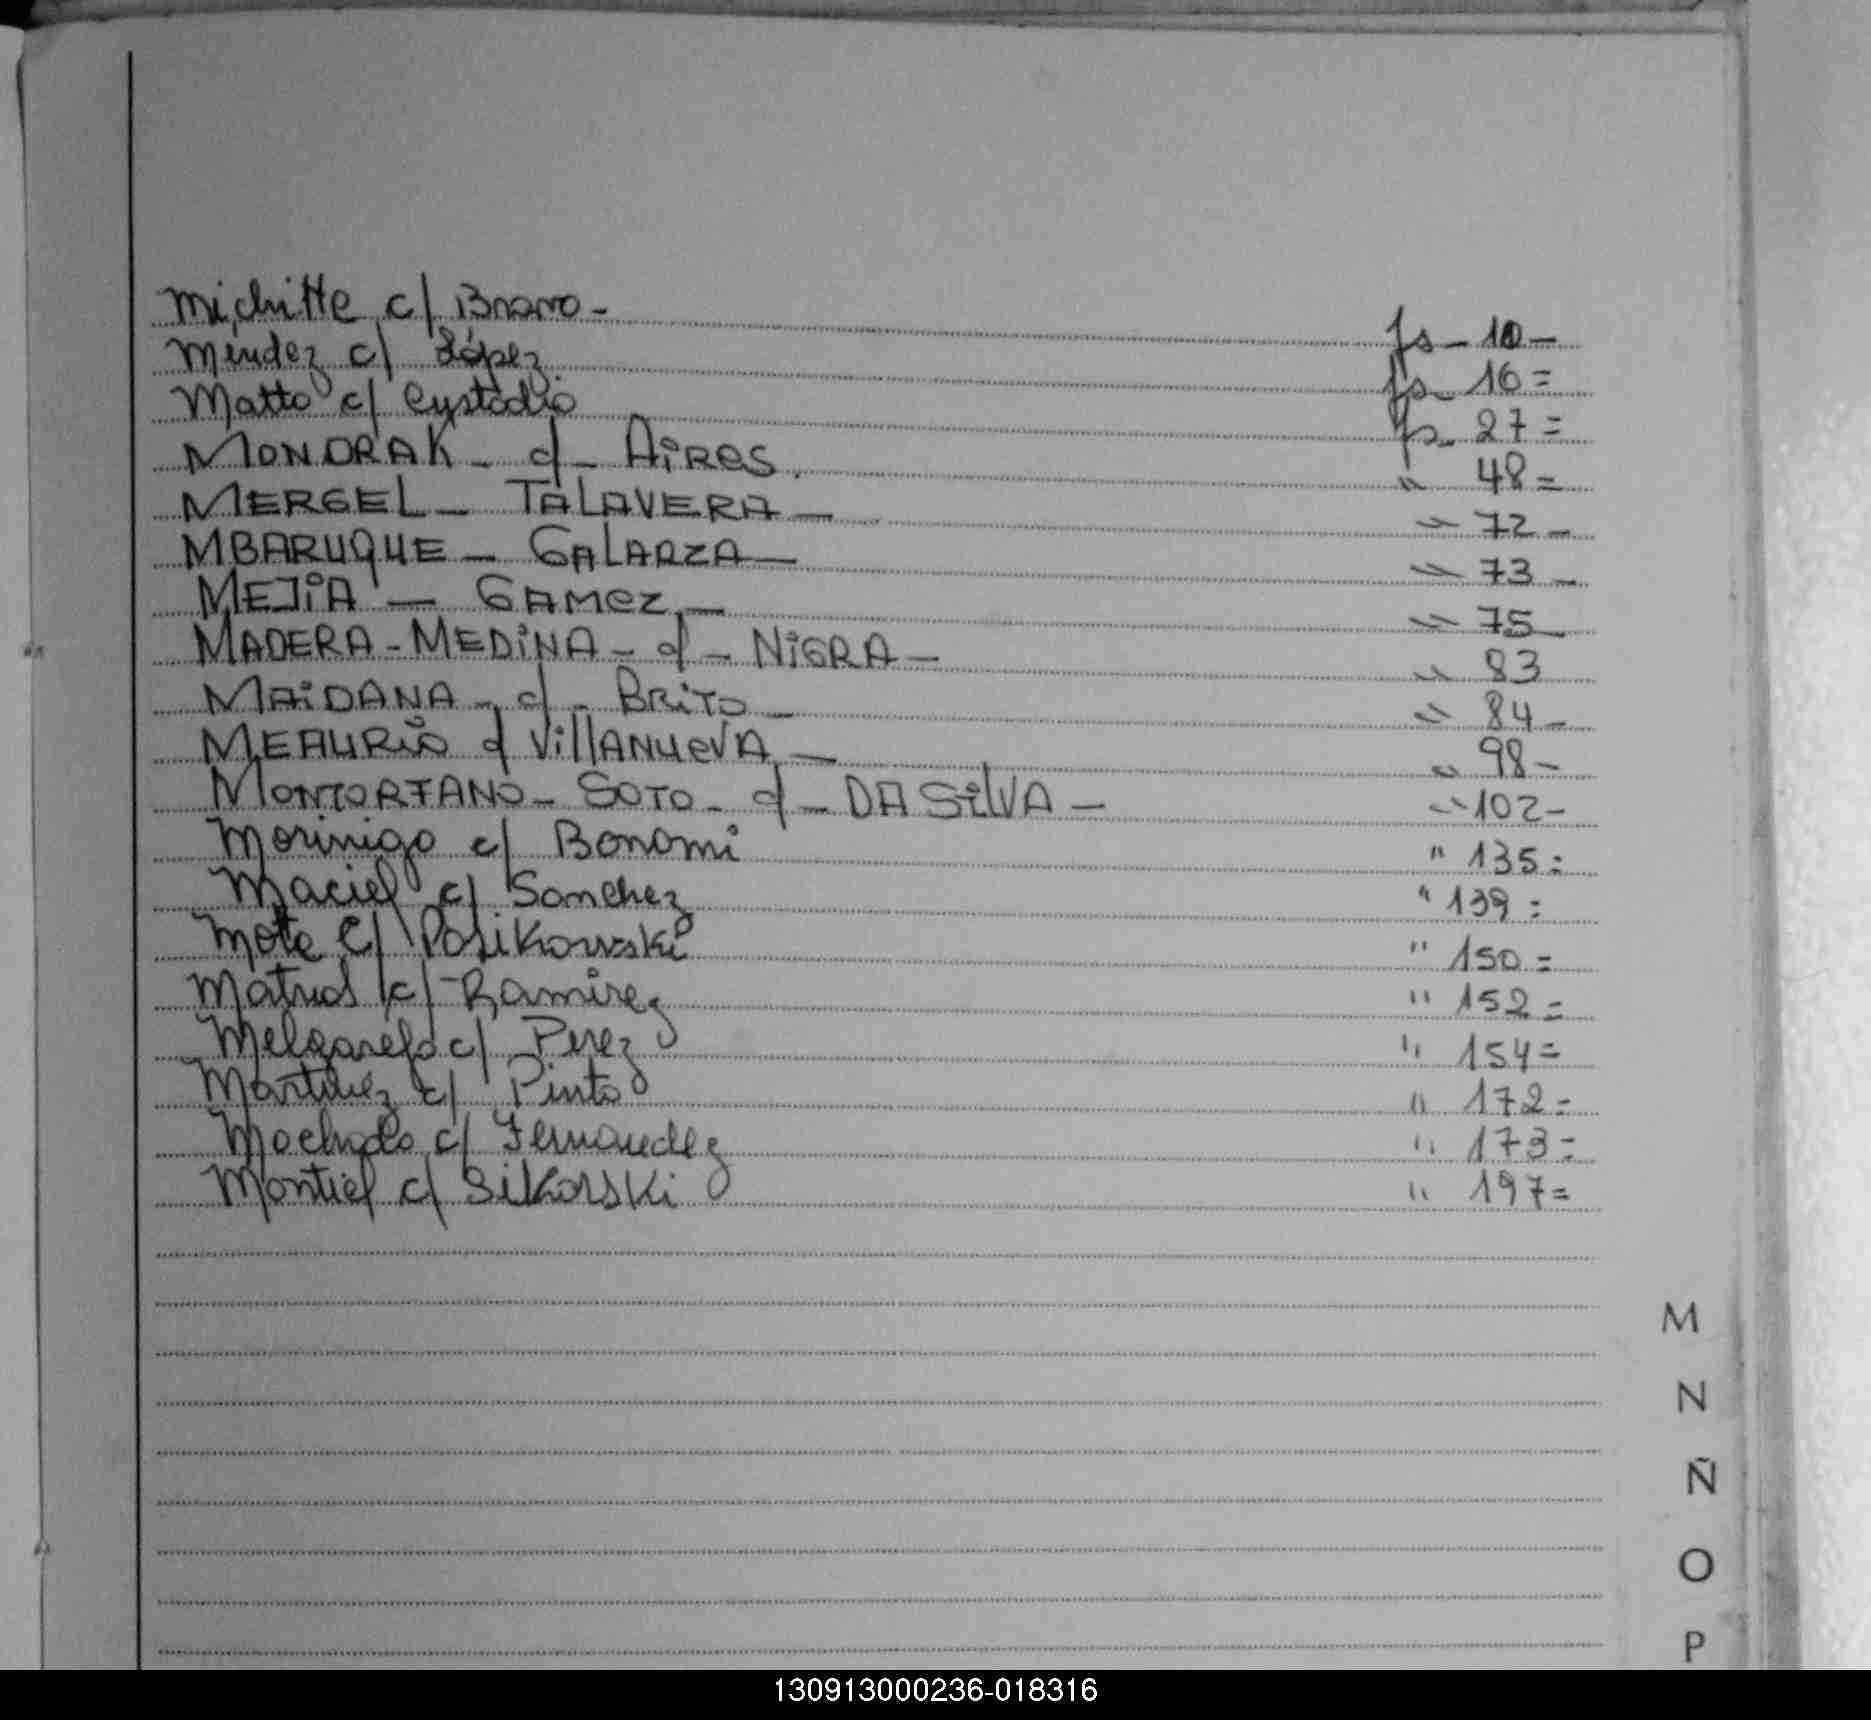 Michitte c/ Bravo - fs - 10 -
Mendez c/ López fs - 16 =
Matto c/ Custodio fs - 27 =
MONDRAK - c/ - AiRES. " 48 =
MERGEL - TALAVERA - " 72 -
MBARUQUE - GALARZA - " 73 -
MEJiA - GAMEZ - " 75 -
MADERA - MEDiNA - c/ - NiGRA - " 83
MAiDANA - c/ - BRiTO - " 84 -
MEAURiO c/ VillANUEVA - " 98 -
MONTORFANO - SOTO - c/ - DA SilVA - " 102 -
Morinigo c/ Bonomi " 135 =
Maciel c/ Sanchez " 139 =
Mota c/ Posikowski " 150 =
c/ Ramirez " 152 =
Melgarejo c/ Perez " 154 =
Martinez c/ Pinto " 172 =
Machado c/ Fernandez " 173 =
Montiel c/ Sikorski " 197 =
M
N
Ñ
O
P
130913000236-018316